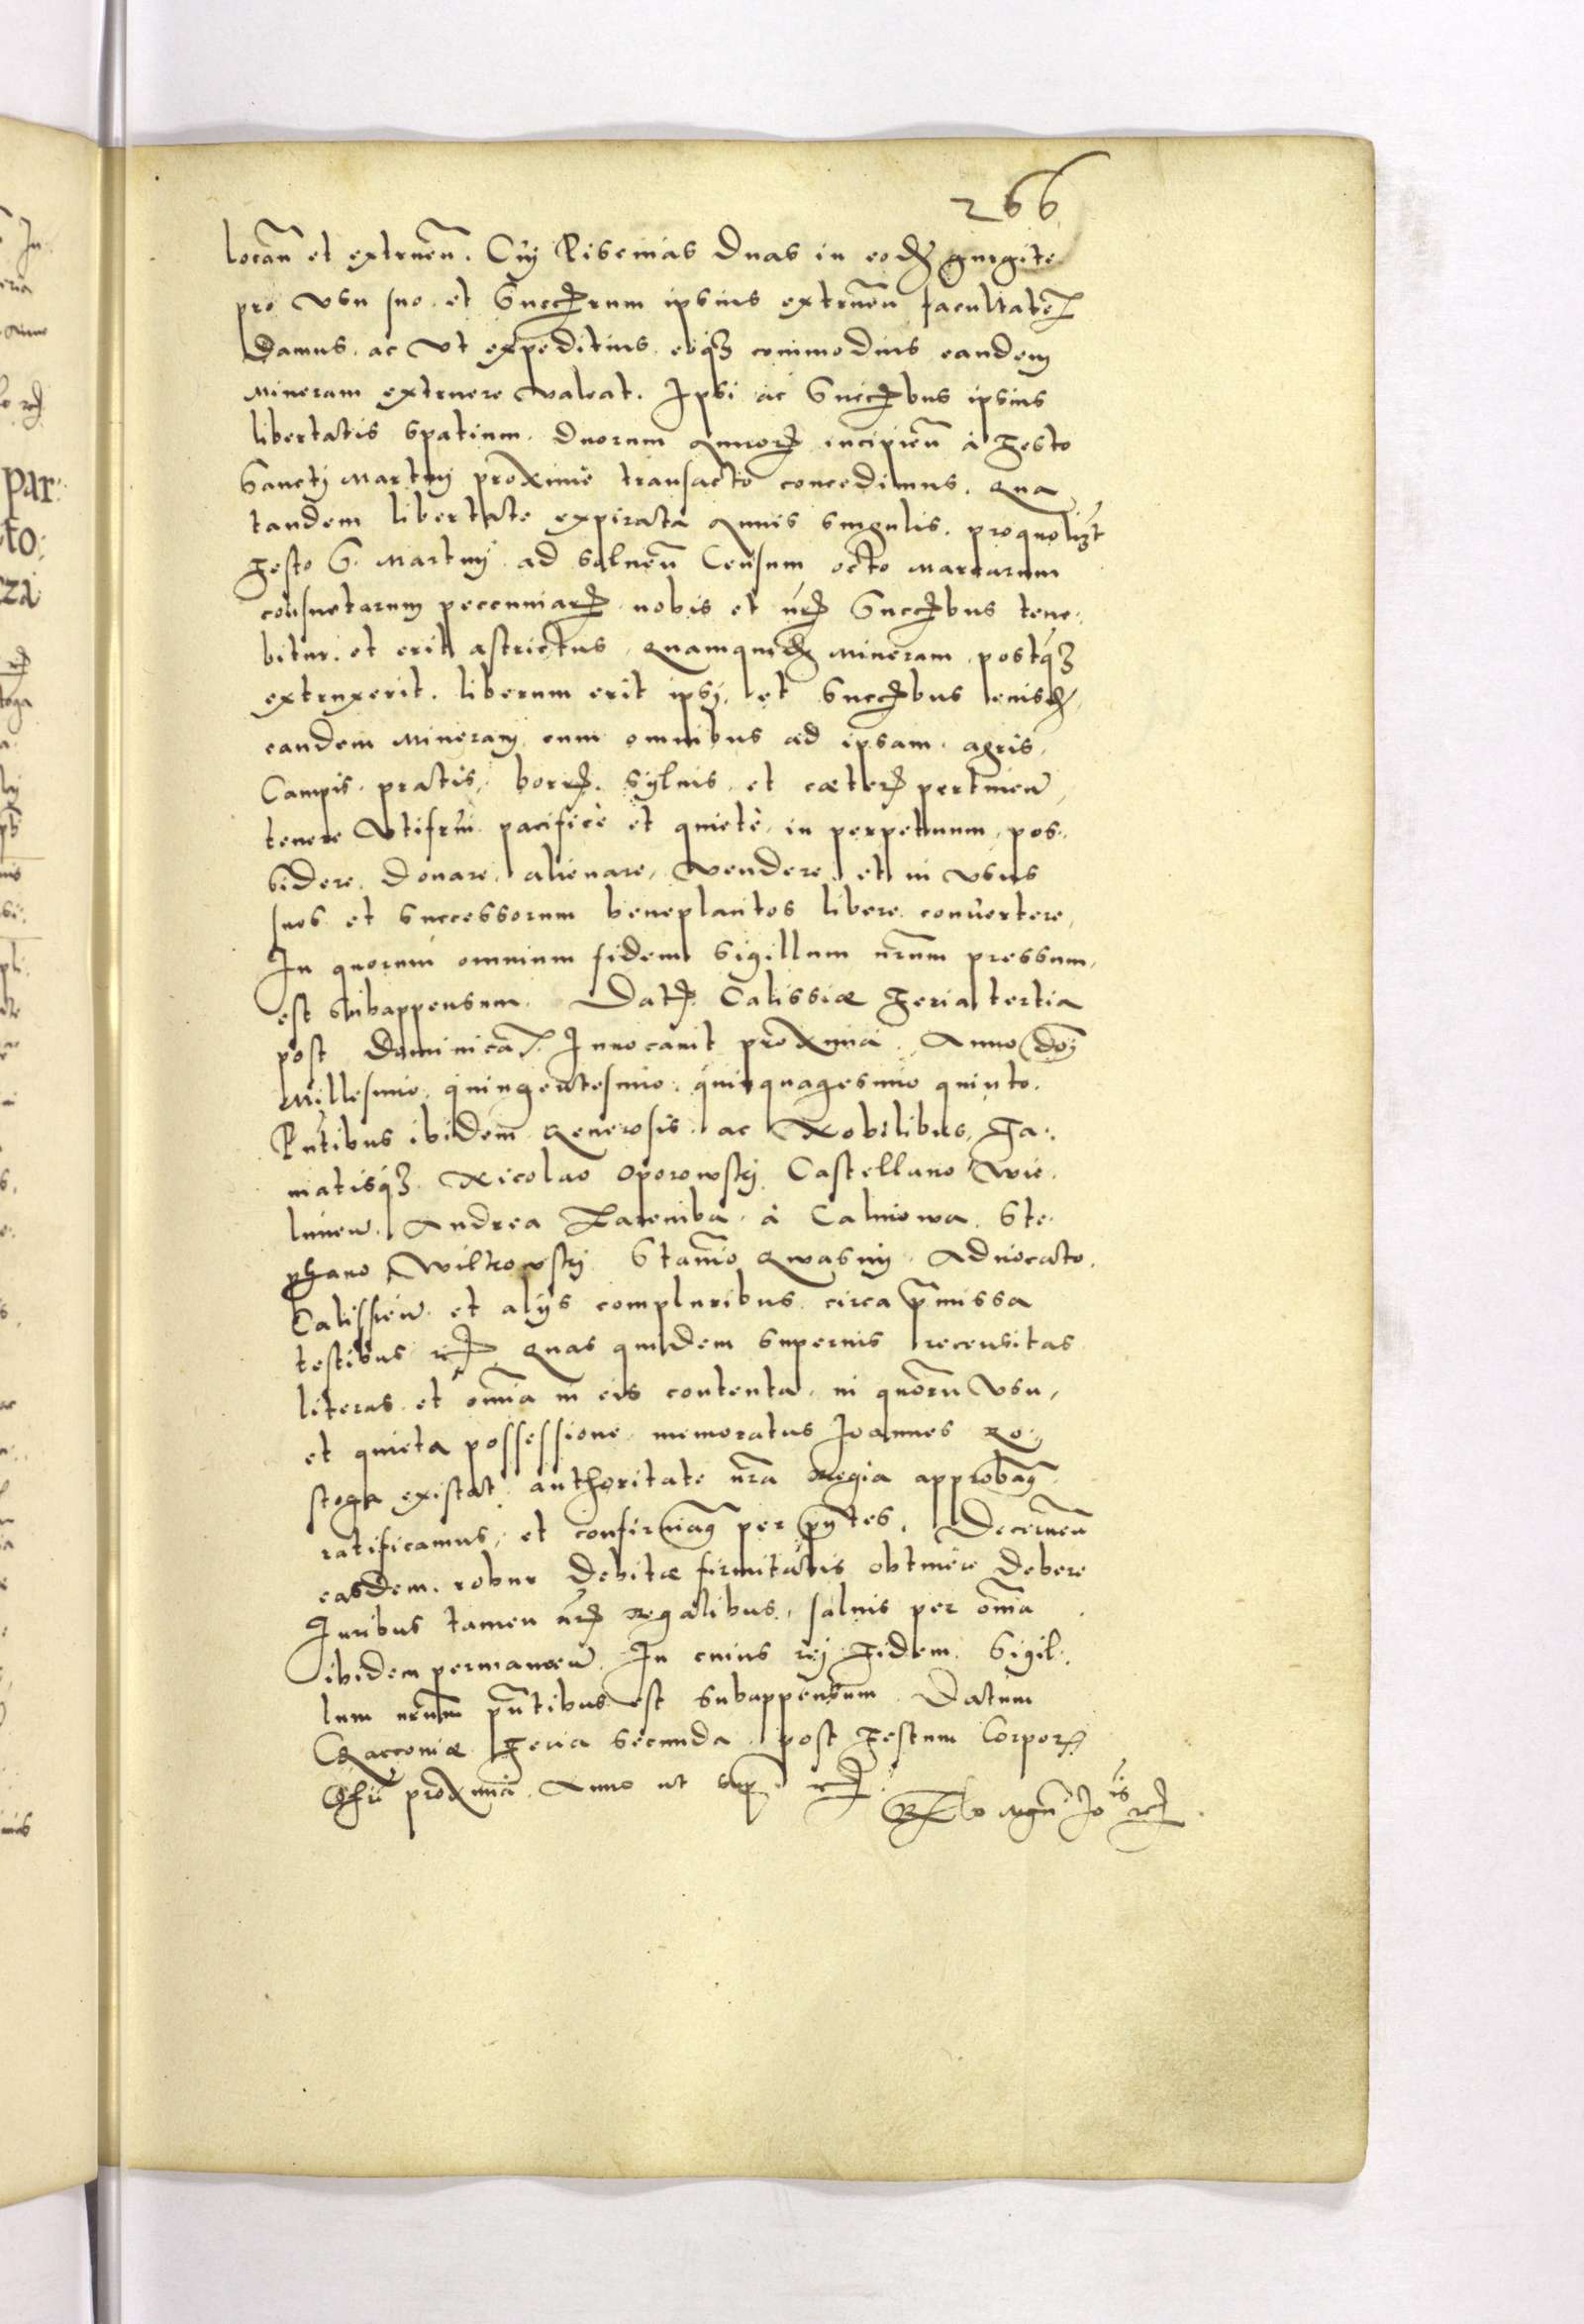 266
locañ et extrueñ. Cui Piscinas Duas in eodem gurgite
pro Vsu suo et Succrum ipsius extrueñ facultatem
Damus, ac Vt expeditius, eoq3 commodius eandem
Mineram extruere valeat. Ipsi ac Succbus ipsius
libertatis spatium Duorum Annor incipieñ à Festo
Sancti Martini proxime transacto concedimus. Qua
tandem libertate expirata Annis singulis, pro quolibet
Festo S. Martini ad solueñ Censum octo Marcarum
consuetarum peccuniar nobis et nris Succbus tene.
bitur, et erit astrictus, Quamquidem Mineram, postq3
extruxerit, liberum erit ipsi, et Succbus
eandem Mineram cum omnibus ad ipsam, agris,
Campis, pratis, borris, syluis, et cæteris pertineñ,
tenere Vtifrui pacificè et quietè, in perpetuum, pos.
sidere, Donare, alienare, Vendere, et in Vsus
suos et successorum beneplacitos libere conuertere,
In quorum omnium fidem Sigillum nrum pressum,
est subappensum. Dat Calissiæ Feria tertia
post Dominicam Inuocauit proxima. Anno Dni
Millesimo quingentesimo quinquagesimo quinto.
Pntibus ibidem Generosis, ac Nobilibus, Fa.
matisq3 Nicolao Oporowsky Castellano Wie.
luneñ. Andrea Zaremba à Calinowa. Ste.
phano Wilkowsky Stanio Qwasnij Aduocato
Calissieñ et alijs compluribus circa pmissa
testibus etc Quas quidem superius recensitas
literas et omia in eis contenta, in quoru Vsu,
et quieta possessione memoratus Joannes Ro.
stoga existat authoritate nra Regia approbam9
ratificamus, et confirmam9 per pntes, Decerneñ
easdem, robur Debitæ firmitatis obtinere Debere
Iuribus tamen nris Regalibus, saluis per omia
ibidem permaneñ. In cuius rei Fidem Sigil.
lum nrum pntibus est Subappensum Datum
Cracouiæ Feria Secunda post Festum Corporis
Chri proxima. Anno ut sup etc
Rlo Mgci Jois etc